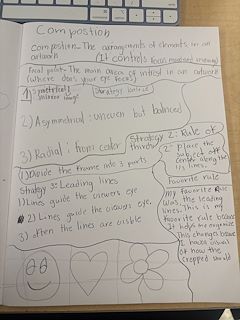 Compostion
Compostion - The arrangements of elements in an
artwork (It controls focus movement viewing)
Focal point - The main area of intrest in an artwork
(where does your eye focus)
1) symetrical: Strategy balance
mirror image
2) Asymmetrical: uneven but balnced
3) Radial: from center
Strategy 2: Rule of
thirds
1) Divide the frame into 3 parts
2) Place the
subject off
center along the
1/3 lines.
Strategy 3: Leading lines
1) Lines guide the viewers eye
2) Lines guide the viewers eye.
3) often the lines are visible
favorite rule
my favorite Rule
was the leading
lines. This is my
favorite rule because
It helps me organize
This changes because